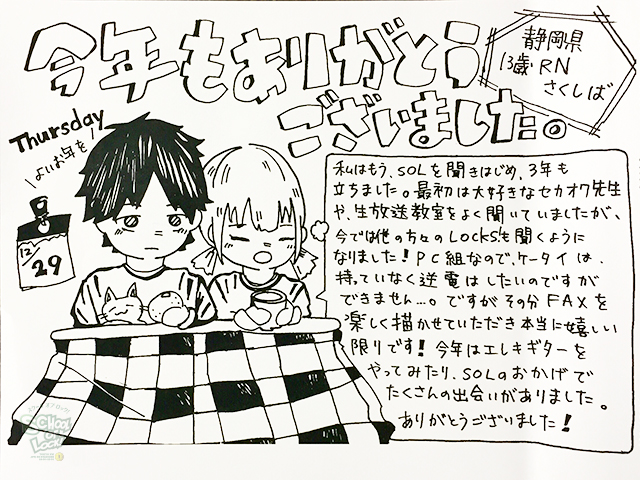 今年もありがとう
ございました。
静岡県
13歳 RN
さくしば
Thursday
\よいお年を/
12/
29
私はもう、SOLを聞きはじめ、3年も
立ちました。最初は大好きなセカオワ先生
や、生放送教室をよく聞いていましたが、
今では他の方々のLOCKS!も聞くように
なりました!PC組なので、ケータイは、
持っていなく逆電はしたいのですが
できません…。ですがその分FAXを
楽しく描かせていただき本当に嬉しい
限りです!今年はエレキギターを
やってみたり、SOLのおかげで
たくさんの出会いがありました。
ありがとうございました!
SCHOOL
OF
LOCK!